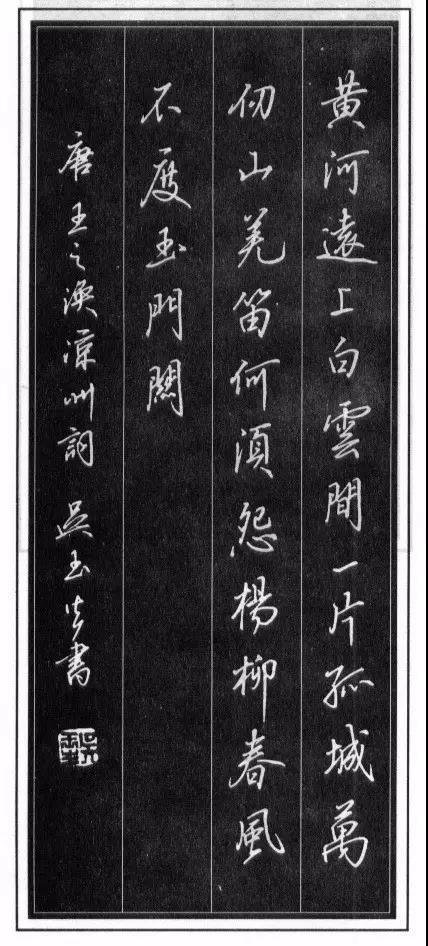 黄河遠上白雲間一片孤城萬
仞山羌笛何須怨楊柳春風
不度玉門關
唐王之渙涼州詞 吳玉生書